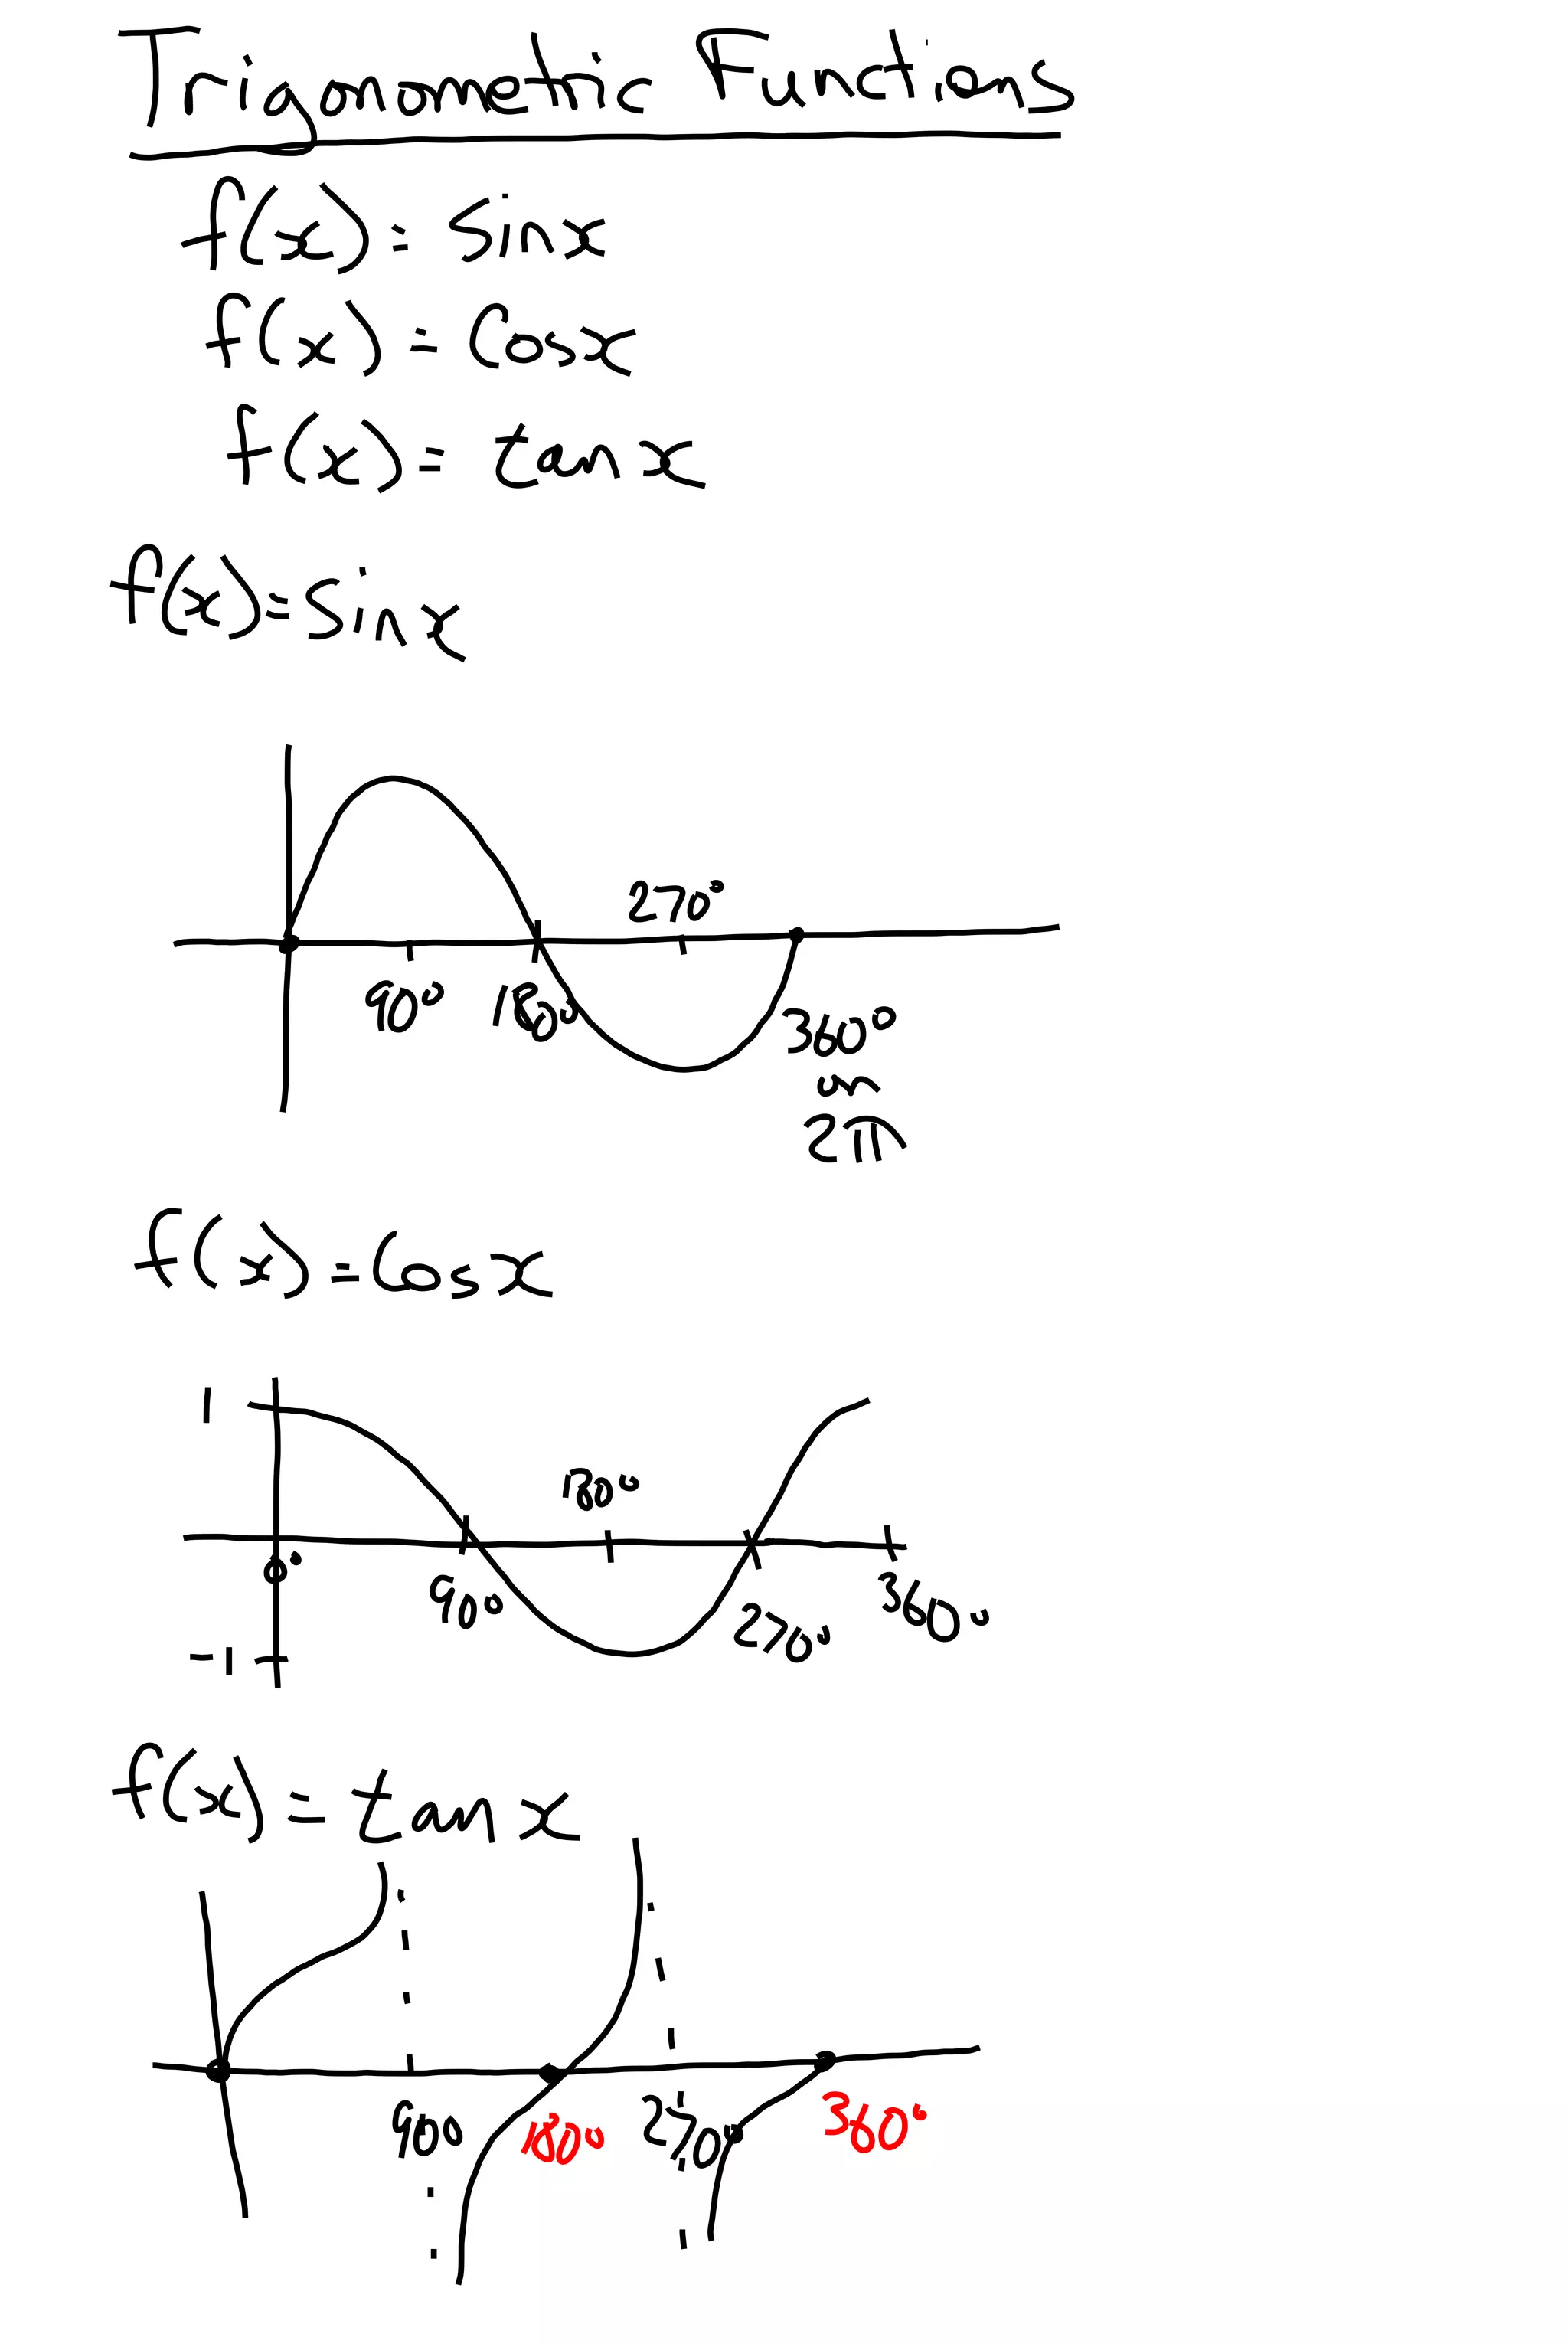 Trigonometric Functions
f(x) = sinx
f(x) = Cosx
f(x) = tanx
f(x) = sinx
270°
90° 180° 360°
or
2π
f(x) = Cosx
1
180°
0°
90° 270° 360°
-1
f(x) = tanx
90° 180° 270° 360°